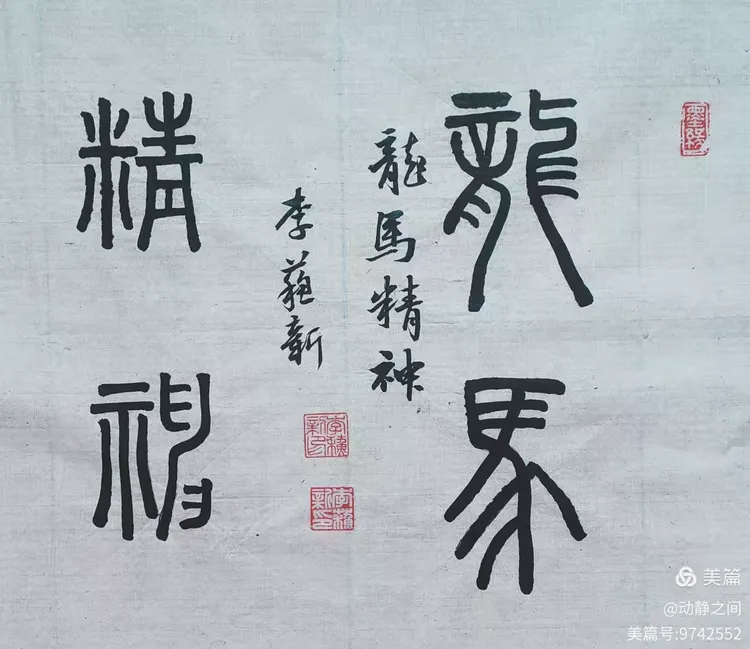 墨緣
龍馬
龍馬精神
李 新
精神
美篇
@动静之间
美篇号:9742552